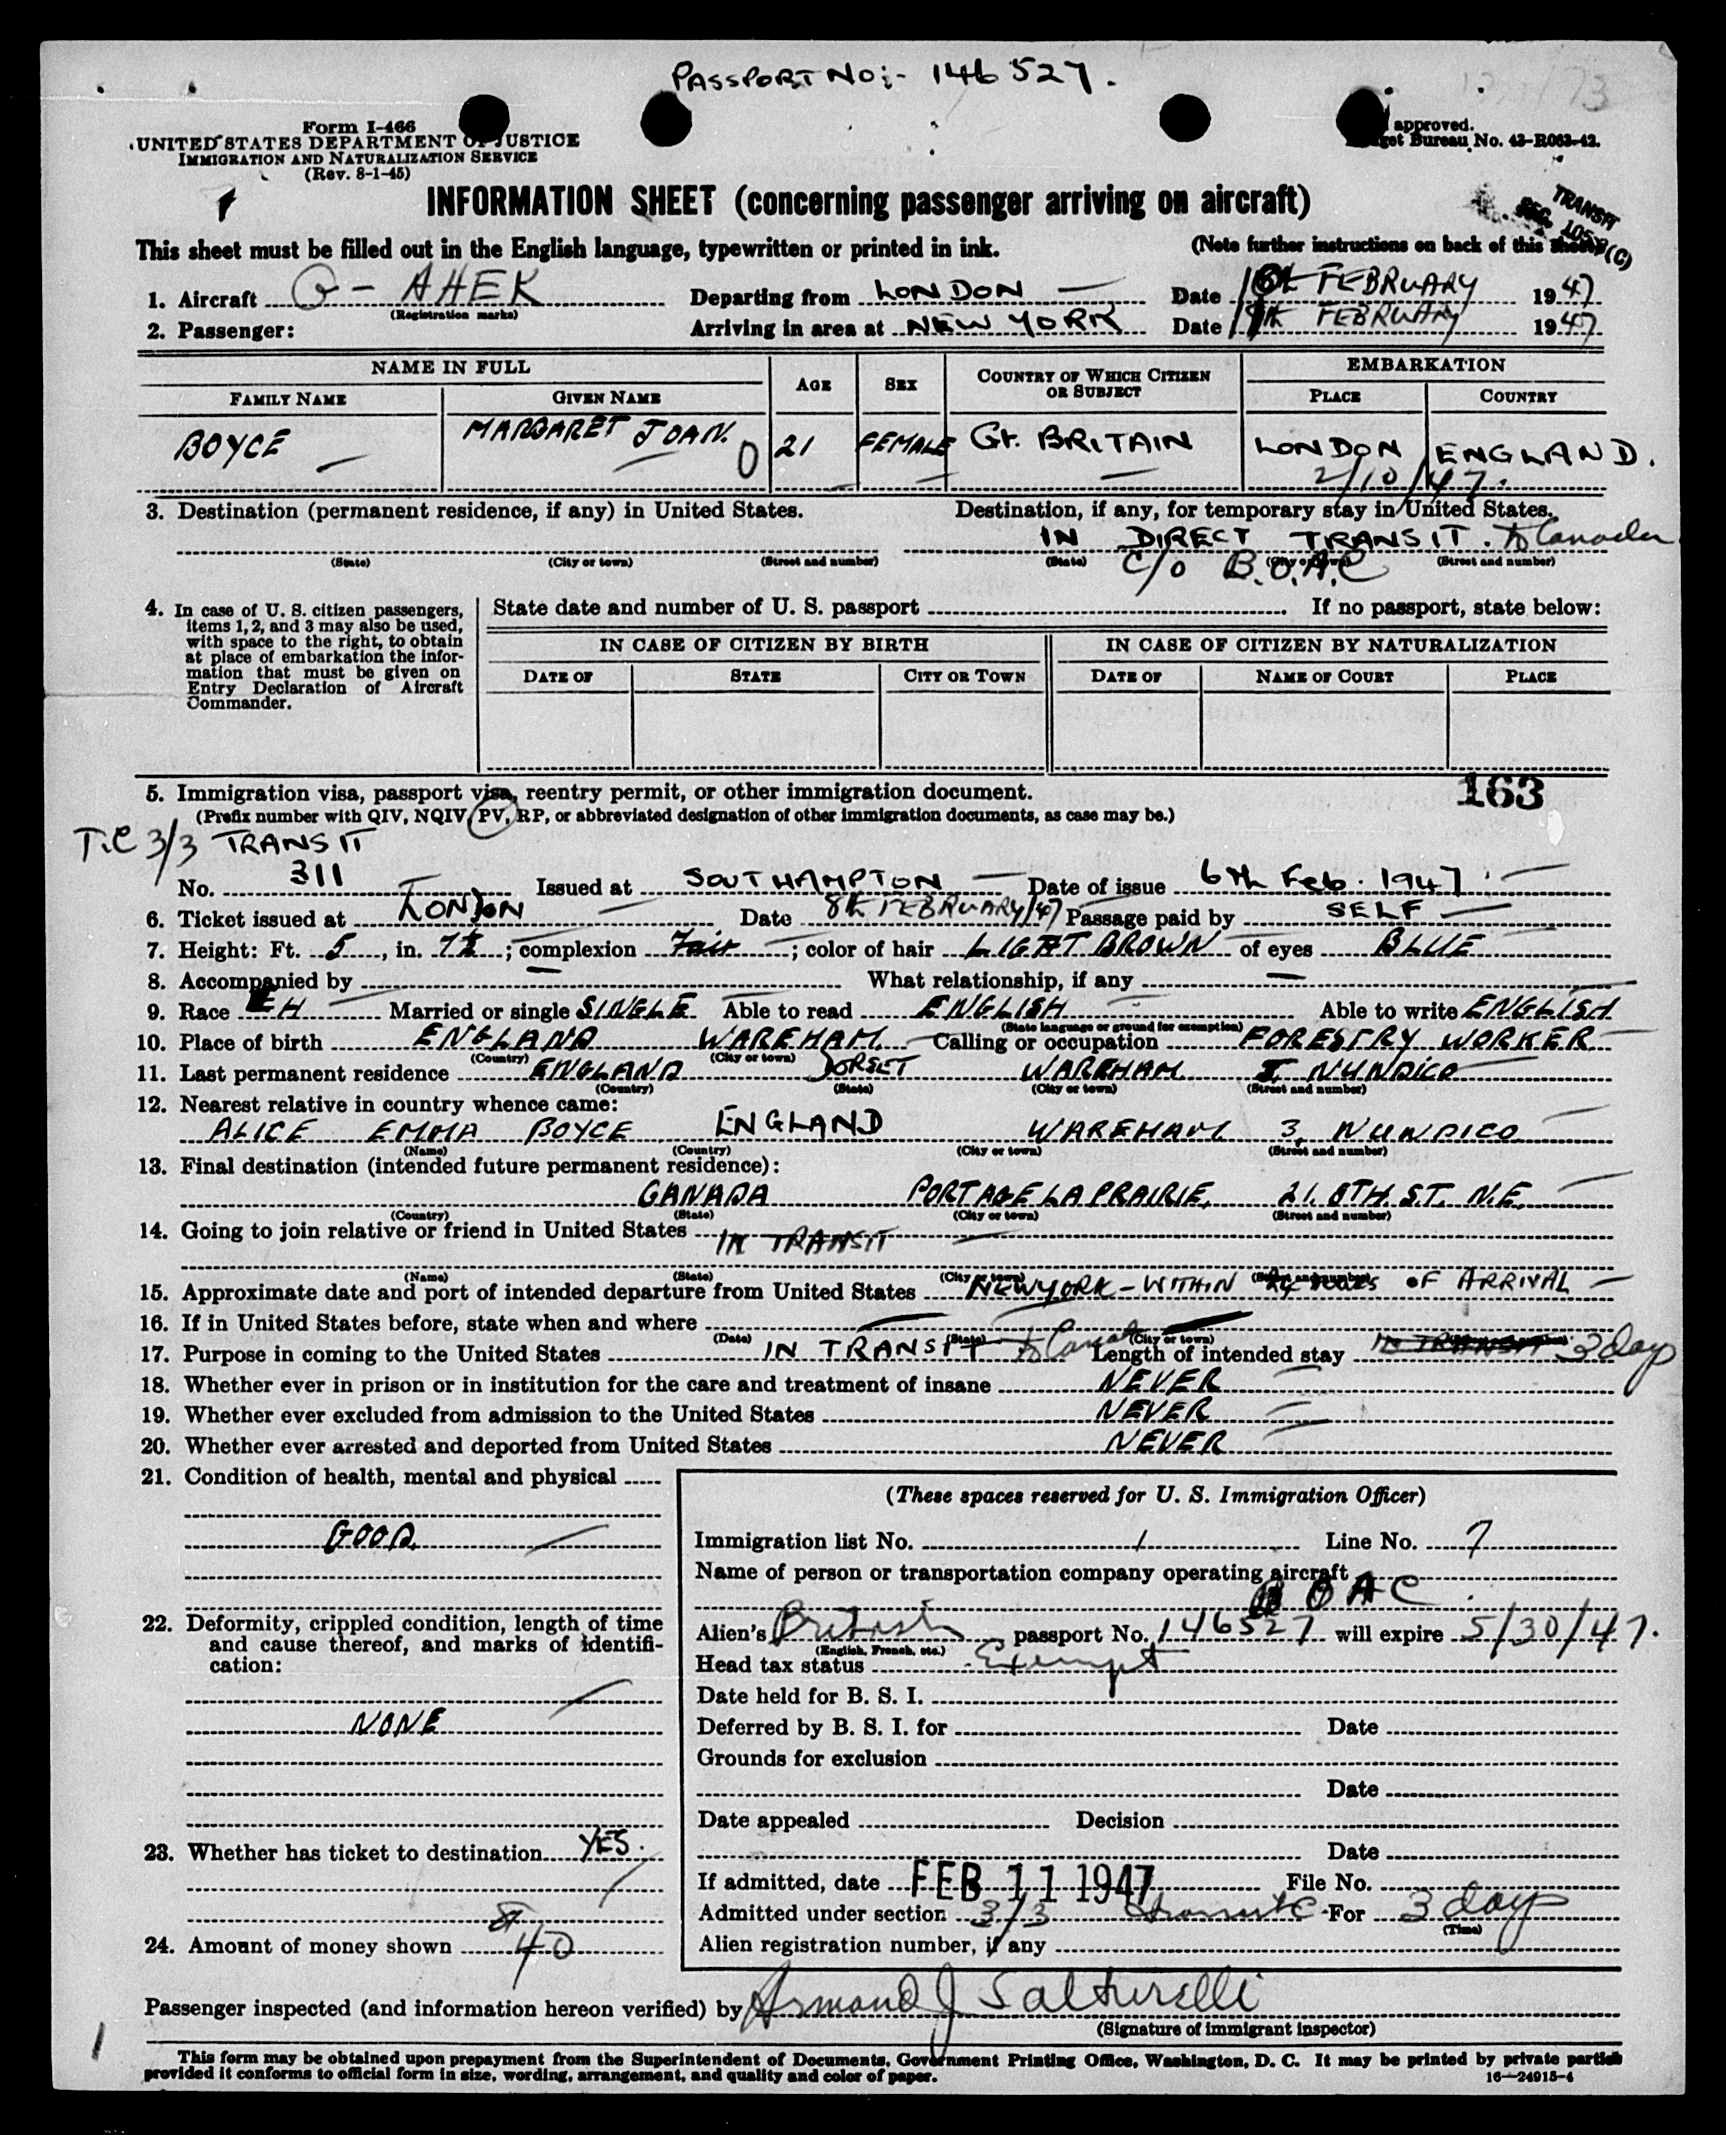 PASSPORT NO:- 146527.
Form I-466
UNITED STATES DEPARTMENT OF JUSTICE
IMMIGRATION AND NATURALIZATION SERVICE
(Rev. 8-1-45)
approved.
Bureau No. 43-R063-42.
INFORMATION SHEET (concerning passenger arriving on aircraft)
TRANSIT
SEC. 105.3(C)
This sheet must be filled out in the English language, typewritten or printed in ink. (Note further instructions on back of this sheet)
1. Aircraft G-AHEK Departing from LONDON Date FEBRUARY 1947
(Registration marks)
2. Passenger: Arriving in area at NEW YORK Date FEBRUARY 1947
NAME IN FULL AGE SEX COUNTRY OF WHICH CITIZEN OR SUBJECT EMBARKATION
FAMILY NAME GIVEN NAME PLACE COUNTRY
BOYCE MARGARET JOAN. 21 FEMALE Gt. BRITAIN LONDON ENGLAND.
2/10/47.
3. Destination (permanent residence, if any) in United States. Destination, if any, for temporary stay in United States.
IN DIRECT TRANSIT. to Canada
(State) (City or town) (Street and number) (State) (City or town) (Street and number)
C/O B.O.A.C
4. In case of U. S. citizen passengers, items 1, 2, and 3 may also be used, with space to the right, to obtain at place of embarkation the information that must be given on Entry Declaration of Aircraft Commander.
State date and number of U. S. passport If no passport, state below:
IN CASE OF CITIZEN BY BIRTH IN CASE OF CITIZEN BY NATURALIZATION
DATE OF STATE CITY OR TOWN DATE OF NAME OF COURT PLACE
163
5. Immigration visa, passport visa, reentry permit, or other immigration document.
(Prefix number with QIV, NQIV, PV, RP, or abbreviated designation of other immigration documents, as case may be.)
T.C 3/3 TRANSIT
No. 311 Issued at SOUTHAMPTON Date of issue 6th Feb. 1947
6. Ticket issued at LONDON Date 8th FEBRUARY/47 Passage paid by SELF
7. Height: Ft. 5, in. 7½; complexion Fair; color of hair LIGHT BROWN of eyes BLUE
8. Accompanied by What relationship, if any
9. Race Married or single SINGLE Able to read ENGLISH Able to write ENGLISH
(State language or ground for exemption)
10. Place of birth ENGLAND WAREHAM Calling or occupation FORESTRY WORKER
(Country) (City or town)
11. Last permanent residence ENGLAND DORSET WAREHAM NUNDICO
(Country) (State) (City or town) (Street and number)
12. Nearest relative in country whence came:
ALICE EMMA BOYCE ENGLAND WAREHAM 3, NUNDICO
(Name) (Country) (City or town) (Street and number)
13. Final destination (intended future permanent residence):
CANADA PORTAGE LA PRAIRIE, 21. 8TH. ST. N.E.
(Country) (State) (City or town) (Street and number)
14. Going to join relative or friend in United States IN TRANSIT
(Name) (State) (City or town) (Street and number)
15. Approximate date and port of intended departure from United States NEW YORK - WITHIN 24 HOURS OF ARRIVAL
16. If in United States before, state when and where
(Date) (State) (City or town)
17. Purpose in coming to the United States IN TRANSIT to Canada Length of intended stay IN TRANSIT 3 days
18. Whether ever in prison or in institution for the care and treatment of insane NEVER
19. Whether ever excluded from admission to the United States NEVER
20. Whether ever arrested and deported from United States NEVER
21. Condition of health, mental and physical
GOOD.
22. Deformity, crippled condition, length of time and cause thereof, and marks of identification:
NONE
23. Whether has ticket to destination YES.
24. Amount of money shown 40
(These spaces reserved for U. S. Immigration Officer)
Immigration list No. 1 Line No. 7
Name of person or transportation company operating aircraft
BOAC
Alien's British passport No. 146527 will expire 5/30/47.
(English, French, etc.)
Head tax status Exempt
Date held for B. S. I.
Deferred by B. S. I. for Date
Grounds for exclusion
Date
Date appealed Decision
Date
If admitted, date FEB 11 1947 File No.
Admitted under section 3/3 transit C For 3 days
(Time)
Alien registration number, if any
Passenger inspected (and information hereon verified) by Armand J Salturelli
(Signature of immigrant inspector)
This form may be obtained upon prepayment from the Superintendent of Documents, Government Printing Office, Washington, D. C. It may be printed by private parties
provided it conforms to official form in size, wording, arrangement, and quality and color of paper.
16-24915-4